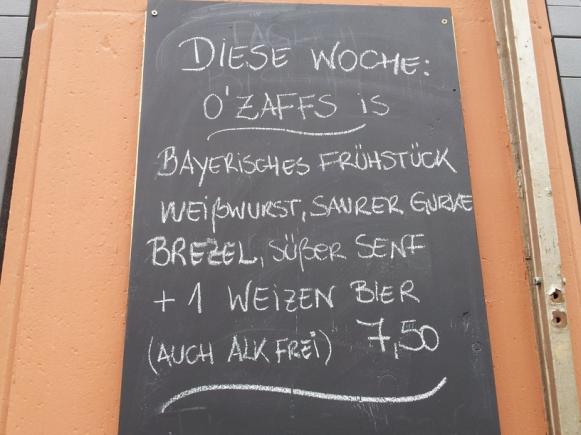 DIESE WOCHE:
O'ZAFFS is
BAYERISCHES FRÜHSTÜCK
WEIßWURST, SAURER GURKE
BREZEL, SÜßER SENF
+ 1 WEIZEN BIER
(AUCH ALKFREI) 7,50